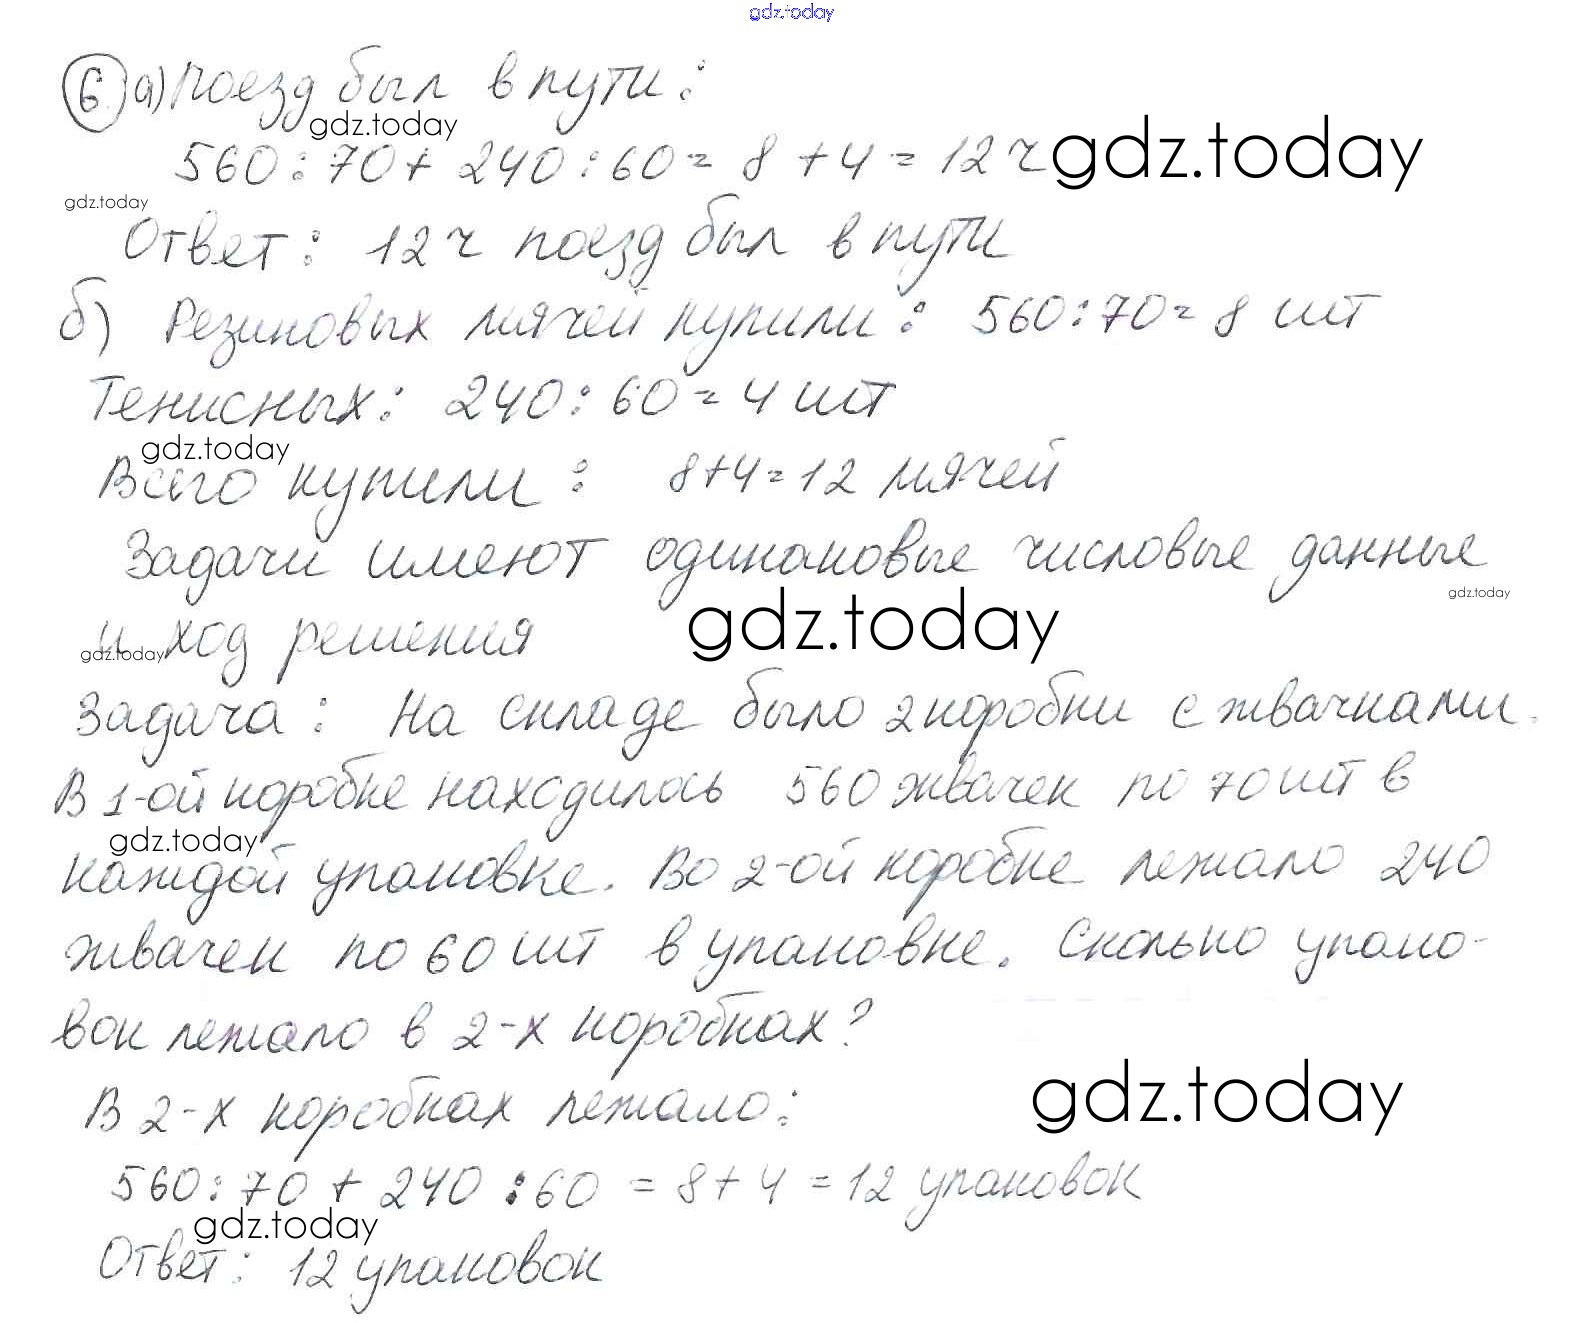 gdz.today
6 а) Поезд был в пути:
gdz.today
560 : 70 + 240 : 60 = 8 + 4 = 12 ч gdz.today
gdz.today
Ответ: 12 ч поезд был в пути
б) Резиновых мячей купили: 560 : 70 = 8 шт
Тенисных: 240 : 60 = 4 шт
gdz.today
Всего купили: 8 + 4 = 12 мячей
Задачи имеют одинаковые числовые данные
gdz.today
и ход решения gdz.today
gdz.today
Задача: На складе было 2 коробки с жвачками.
В 1-ой коробке находилось 560 жвачек по 70 шт в
gdz.today
каждой упаковке. Во 2-ой коробке лежало 240
жвачек по 60 шт в упаковке. Сколько упако-
вок лежало в 2-х коробках?
В 2-х коробках лежало: gdz.today
560 : 70 + 240 : 60 = 8 + 4 = 12 упаковок
gdz.today
Ответ: 12 упаковок